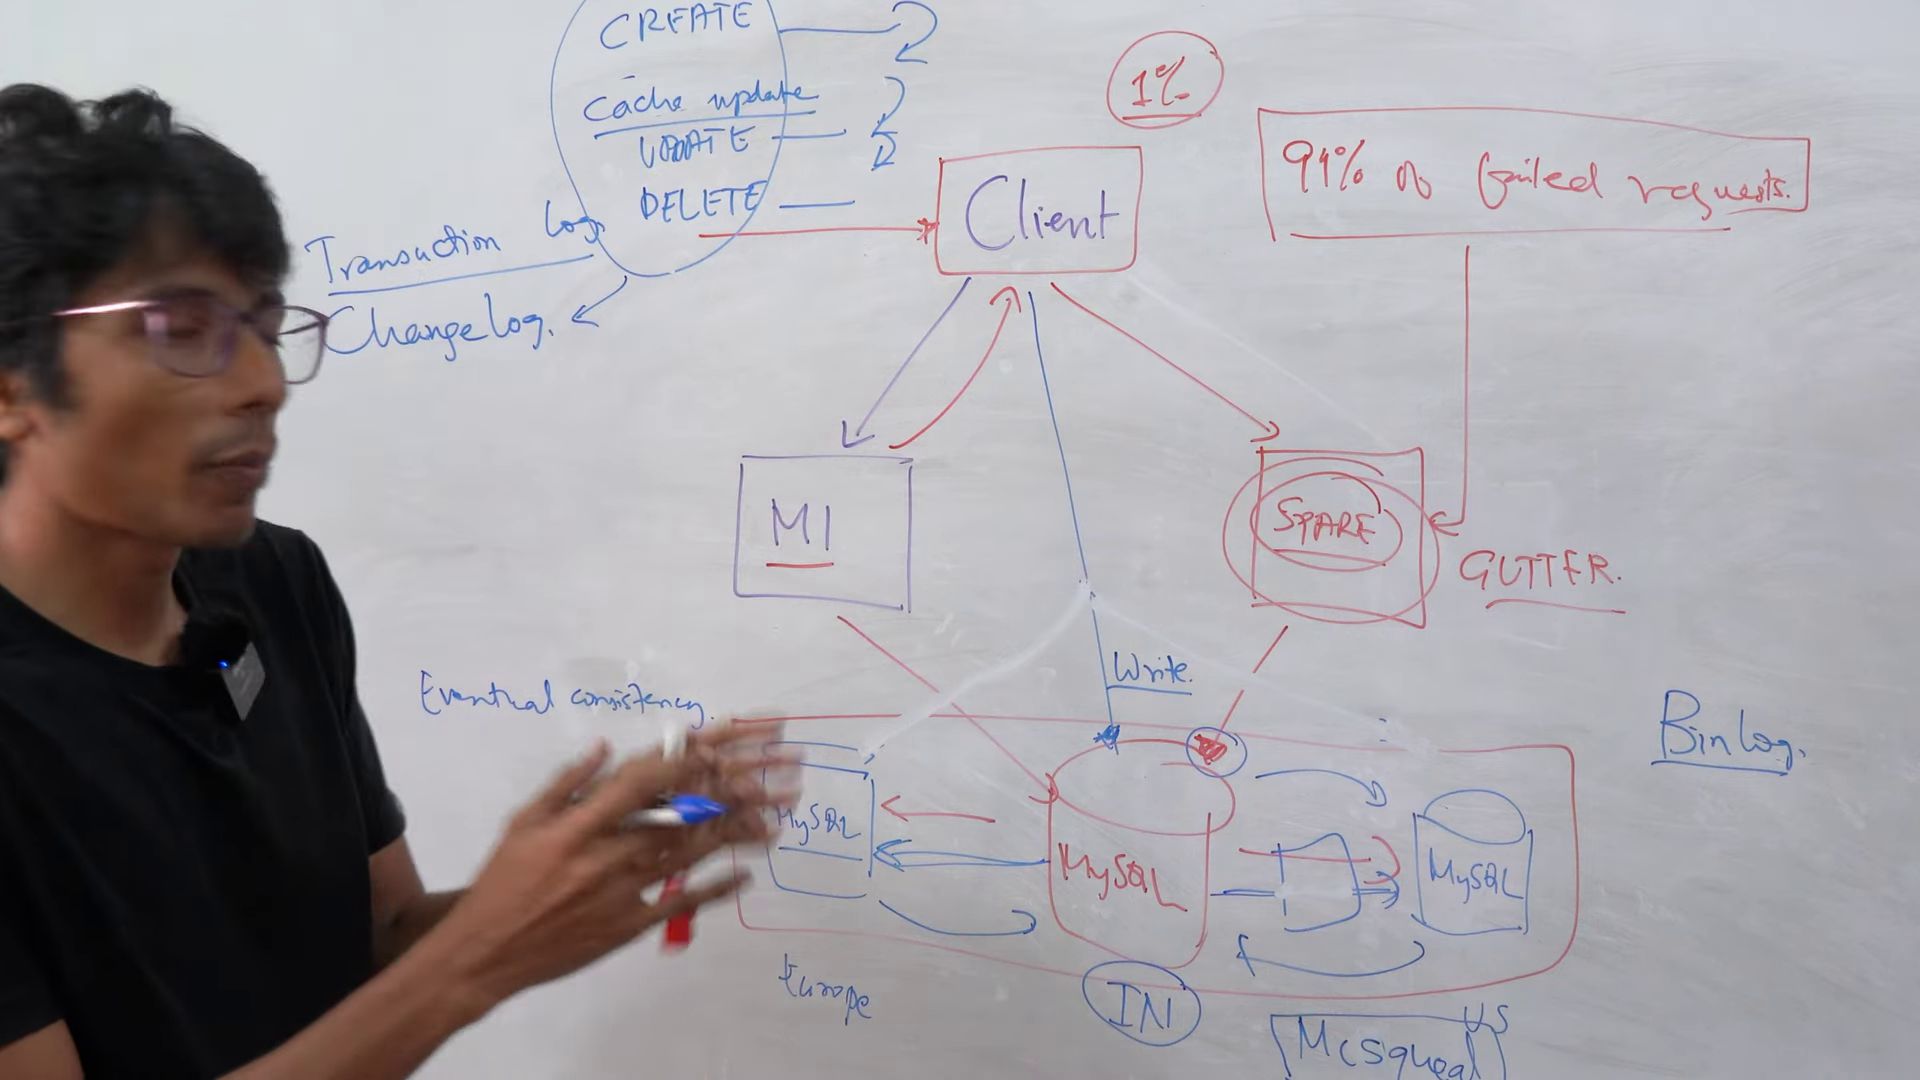 CREATE
Cache update
UPDATE
DELETE
Transaction Log
Changelog.
1%
Client
99% of failed requests.
M1
SPARE
GUTTER.
Write.
Eventual consistency.
Binlog.
MySQL
MySQL
MySQL
Europe
IN
US
McSqueal